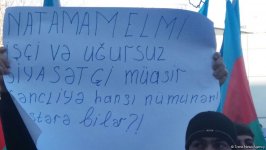 NATAMAM ELMİ
İŞÇİ Və uğursuz
SİYASƏTÇİ müasir
gəncliyə hansı nümunəni
göstərə bilər?!
© Trend News Agency